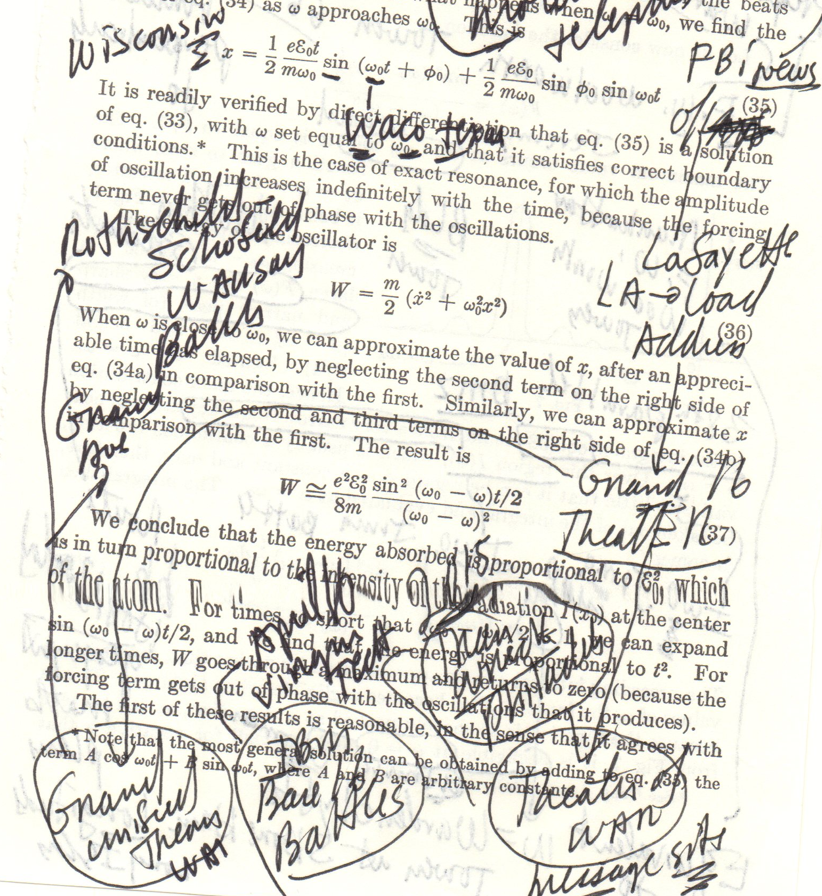 eq. (34) as ω approaches ω₀. This is
when ω₀, we find the
the beats
Wisconsin
x = 1/2 eℰ₀t/mω₀ sin (ω₀t + φ₀) + 1/2 eℰ₀/mω₀ sin φ₀ sin ω₀t
PBi news
(35)
It is readily verified by direct differentiation that eq. (35) is a solution
Waco texas
of eq. (33), with ω set equal to ω₀, and that it satisfies correct boundary
conditions.* This is the case of exact resonance, for which the amplitude
of oscillation increases indefinitely with the time, because the forcing
term never gets out of phase with the oscillations.
The energy of the oscillator is
Rothschild
Schofield
Wausau
Battles
Lafayette
LA → Load
Address
W = m/2 (ẋ² + ω₀²x²)
(36)
When ω is close to ω₀, we can approximate the value of x, after an appreci-
able time has elapsed, by neglecting the second term on the right side of
eq. (34a) in comparison with the first. Similarly, we can approximate x
by neglecting the second and third terms on the right side of eq. (34b)
in comparison with the first. The result is
Grand
Ave
W ≅ e²ℰ₀²/8m sin² (ω₀ − ω)t/2/(ω₀ − ω)²
(37)
Grand
Theater
We conclude that the energy absorbed is proportional to ℰ₀², which
is in turn proportional to the intensity of the radiation I(x₀) at the center
of the atom. For times short that we can expand
sin (ω₀ − ω)t/2, and we find that the energy is proportional to t². For
longer times, W goes through a maximum and returns to zero (because the
forcing term gets out of phase with the oscillations that it produces).
The first of these results is reasonable, in the sense that it agrees with
*Note that the most general solution can be obtained by adding to eq. (35) the
term A cos ω₀t + B sin ω₀t, where A and B are arbitrary constants.
Grand
IBM
Base
Battles
Theatre
WAR
message site